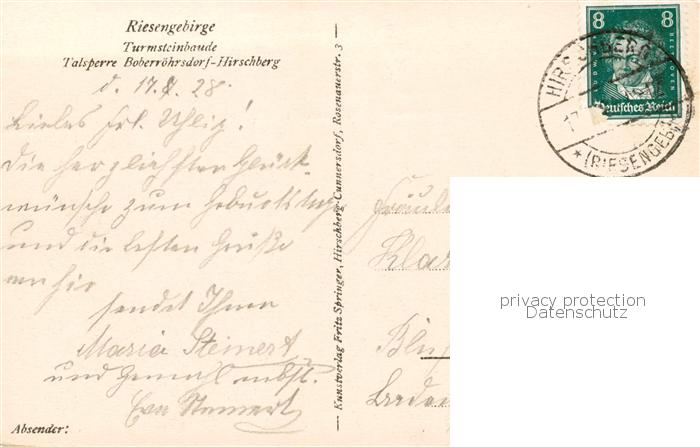 Riesengebirge
Turmsteinbaude
Talsperre Boberröhrsdorf-Hirschberg
d. 17. 8. 28.
Liebes Frl. Uhlig!
Die herzlichsten Glück-
wünsche zum Geburtstag
und die besten Grüße
an Sie
sendet Ihnen
Maria Steinert
und Gemahl nebst
Eva Steinert
Absender:
Kunstverlag Fritz Springer, Hirschberg-Cunnersdorf, Rosenauerstr. 3
8 8
LUDWIG
Deutsches Reich
HIRSCHBERG
17
* (RIESENGEB
Fräulein
Klar
privacy protection
Datenschutz
Baden